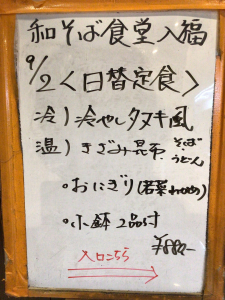 和そば食堂入福
9/2<日替定食>
冷)冷やしタヌキ風
温)きざみ昆布 そば・うどん
・おにぎり(若菜わかめ)
・小鉢2品付
¥880-
入口こちら